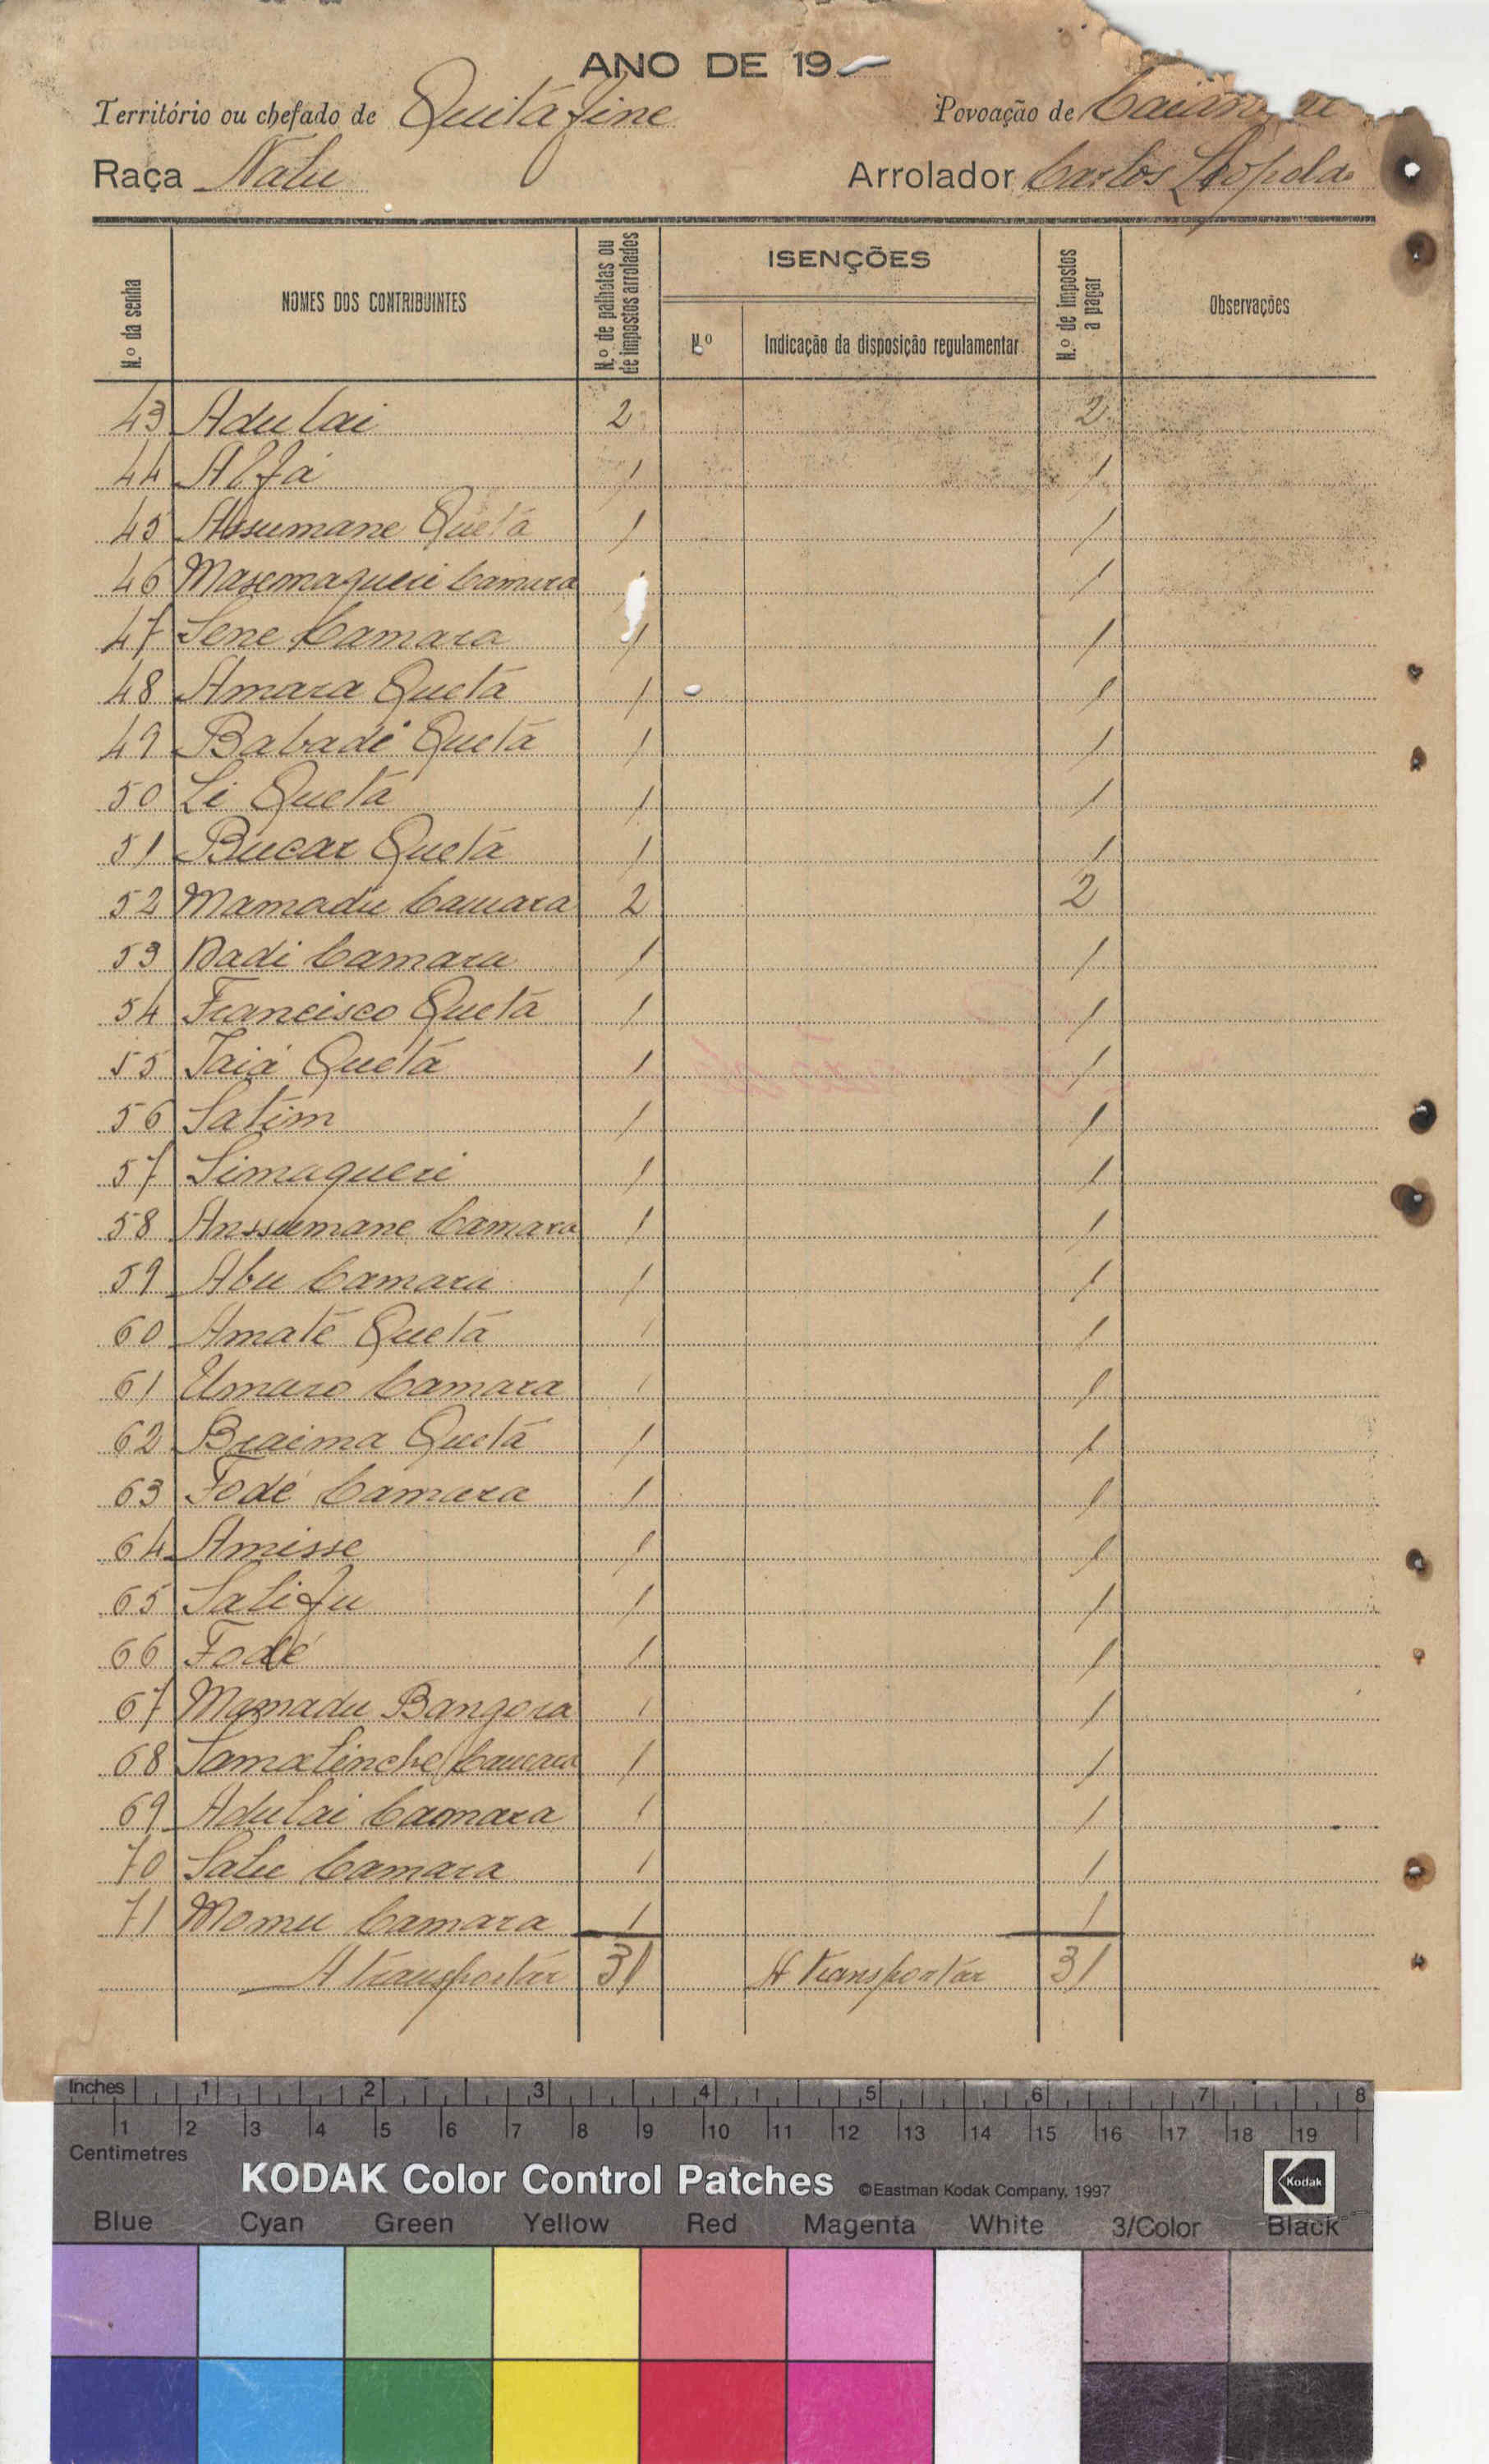 ANO DE 19
Território ou chefado de Quitáfine Povoação de
Raça Nalu Arrolador Carlos Leopoldo
N.º da senha NOMES DOS CONTRIBUINTES N.º de palhotas ou de impostos arrolados ISENÇÕES N.º de impostos a pagar Observações
N.º Indicação da disposição regulamentar
43 Adulai 2 2
44 Alfá 1 1
45 Assumane Quetá 1 1
46 Masemaqueri Camara 1
47 Sene Camara 1 1
48 Amara Quetá 1 1
49 Babadi Quetá 1 1
50 Li Quetá 1 1
51 Bucar Quetá 1 1
52 Mamadu Camara 2 2
53 Dadi Camara 1 1
54 Francisco Quetá 1 1
55 Jaiá Quetá 1 1
56 Salim 1 1
57 Simaqueri 1 1
58 Anssumane Camara 1 1
59 Abu Camara 1 1
60 Amaté Quetá 1 1
61 Umaro Camara 1 1
62 Braima Quetá 1 1
63 Fodé Camara 1 1
64 Amisse 1 1
65 Salifu 1 1
66 Fodé 1 1
67 Mamadu Bangora 1 1
68 Camara 1 1
69 Adulai Camara 1 1
70 Salu Camara 1 1
71 Momu Camara 1 1
A transportar 31 A transportar 31
Inches 1 2 3 4 5 6 7 8
1 2 3 4 5 6 7 8 9 10 11 12 13 14 15 16 17 18 19
Centimetres
KODAK Color Control Patches ©Eastman Kodak Company, 1997 Kodak
Blue Cyan Green Yellow Red Magenta White 3/Color Black